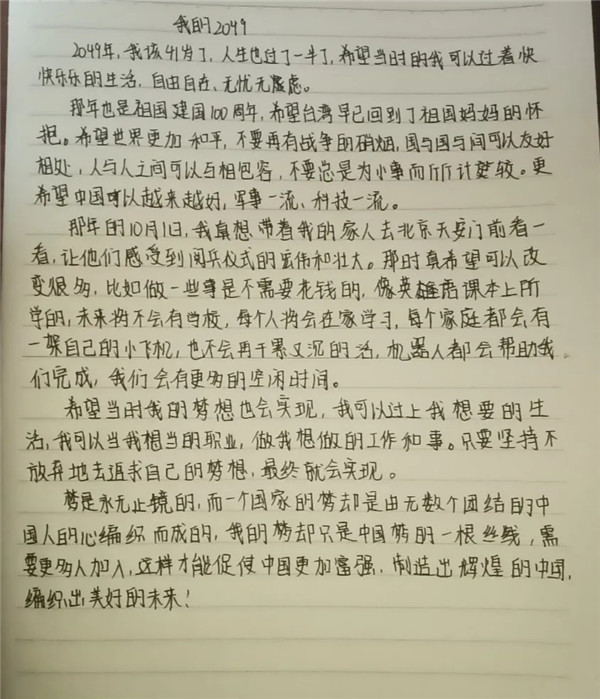 我的2049
2049年，我该41岁了，人生也过了一半了，希望当时的我可以过着快
快乐乐的生活，自由自在、无忧无虑。
那年也是祖国建国100周年，希望台湾早已回到了祖国妈妈的怀
抱。希望世界更加和平，不要再有战争的硝烟，国与国与间可以友好
相处，人与人之间可以互相包容，不要总是为小事而斤斤计较。更
希望中国可以越来越好，军事一流、科技一流。
那年的10月1日，我真想带着我的家人去北京天安门前看一
看，让他们感受到阅兵仪式的宏伟和壮大。那时真希望可以改
变很多，比如做一些事是不需要花钱的，像英语课本上所
学的，未来将不会有学校，每个人将会在家学习，每个家庭都会有
一架自己的小飞机，也不会再干累又沉的活，机器人都会帮助我
们完成，我们会有更多的空闲时间。
希望当时我的梦想也会实现，我可以过上我想要的生
活，我可以当我想当的职业，做我想做的工作和事。只要坚持不
放弃地去追求自己的梦想，最终就会实现。
梦是永无止镜的，而一个国家的梦却是由无数个团结的中
国人的心编织而成的，我的梦却只是中国梦的一根丝线，需
要更多人加入，这样才能促使中国更加富强，制造出辉煌的中国，
编织出美好的未来！